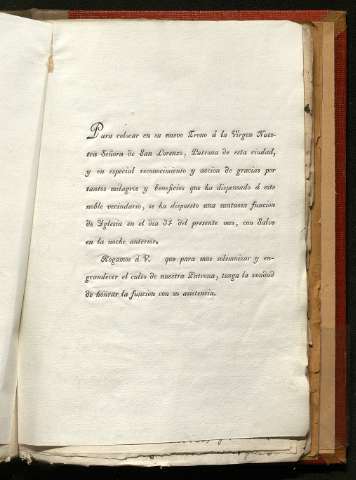 Para colocar en su nuevo Trono á la Virgen Nues-
tra Señora de San Lorenzo, Patrona de esta ciudad,
y en especial reconocimiento y accion de gracias por
tantos milagros y beneficios que ha dispensado á este
noble vecindario, se ha dispuesto una suntuosa funcion
de Yglesia en el dia del presente mes, con Salve
en la noche anterior.
Rogamos á V. que para mas solemnizar y en-
grandecer el culto de nuestra Patrona, tenga la bondad
de honrar la funcion con su asistencia.